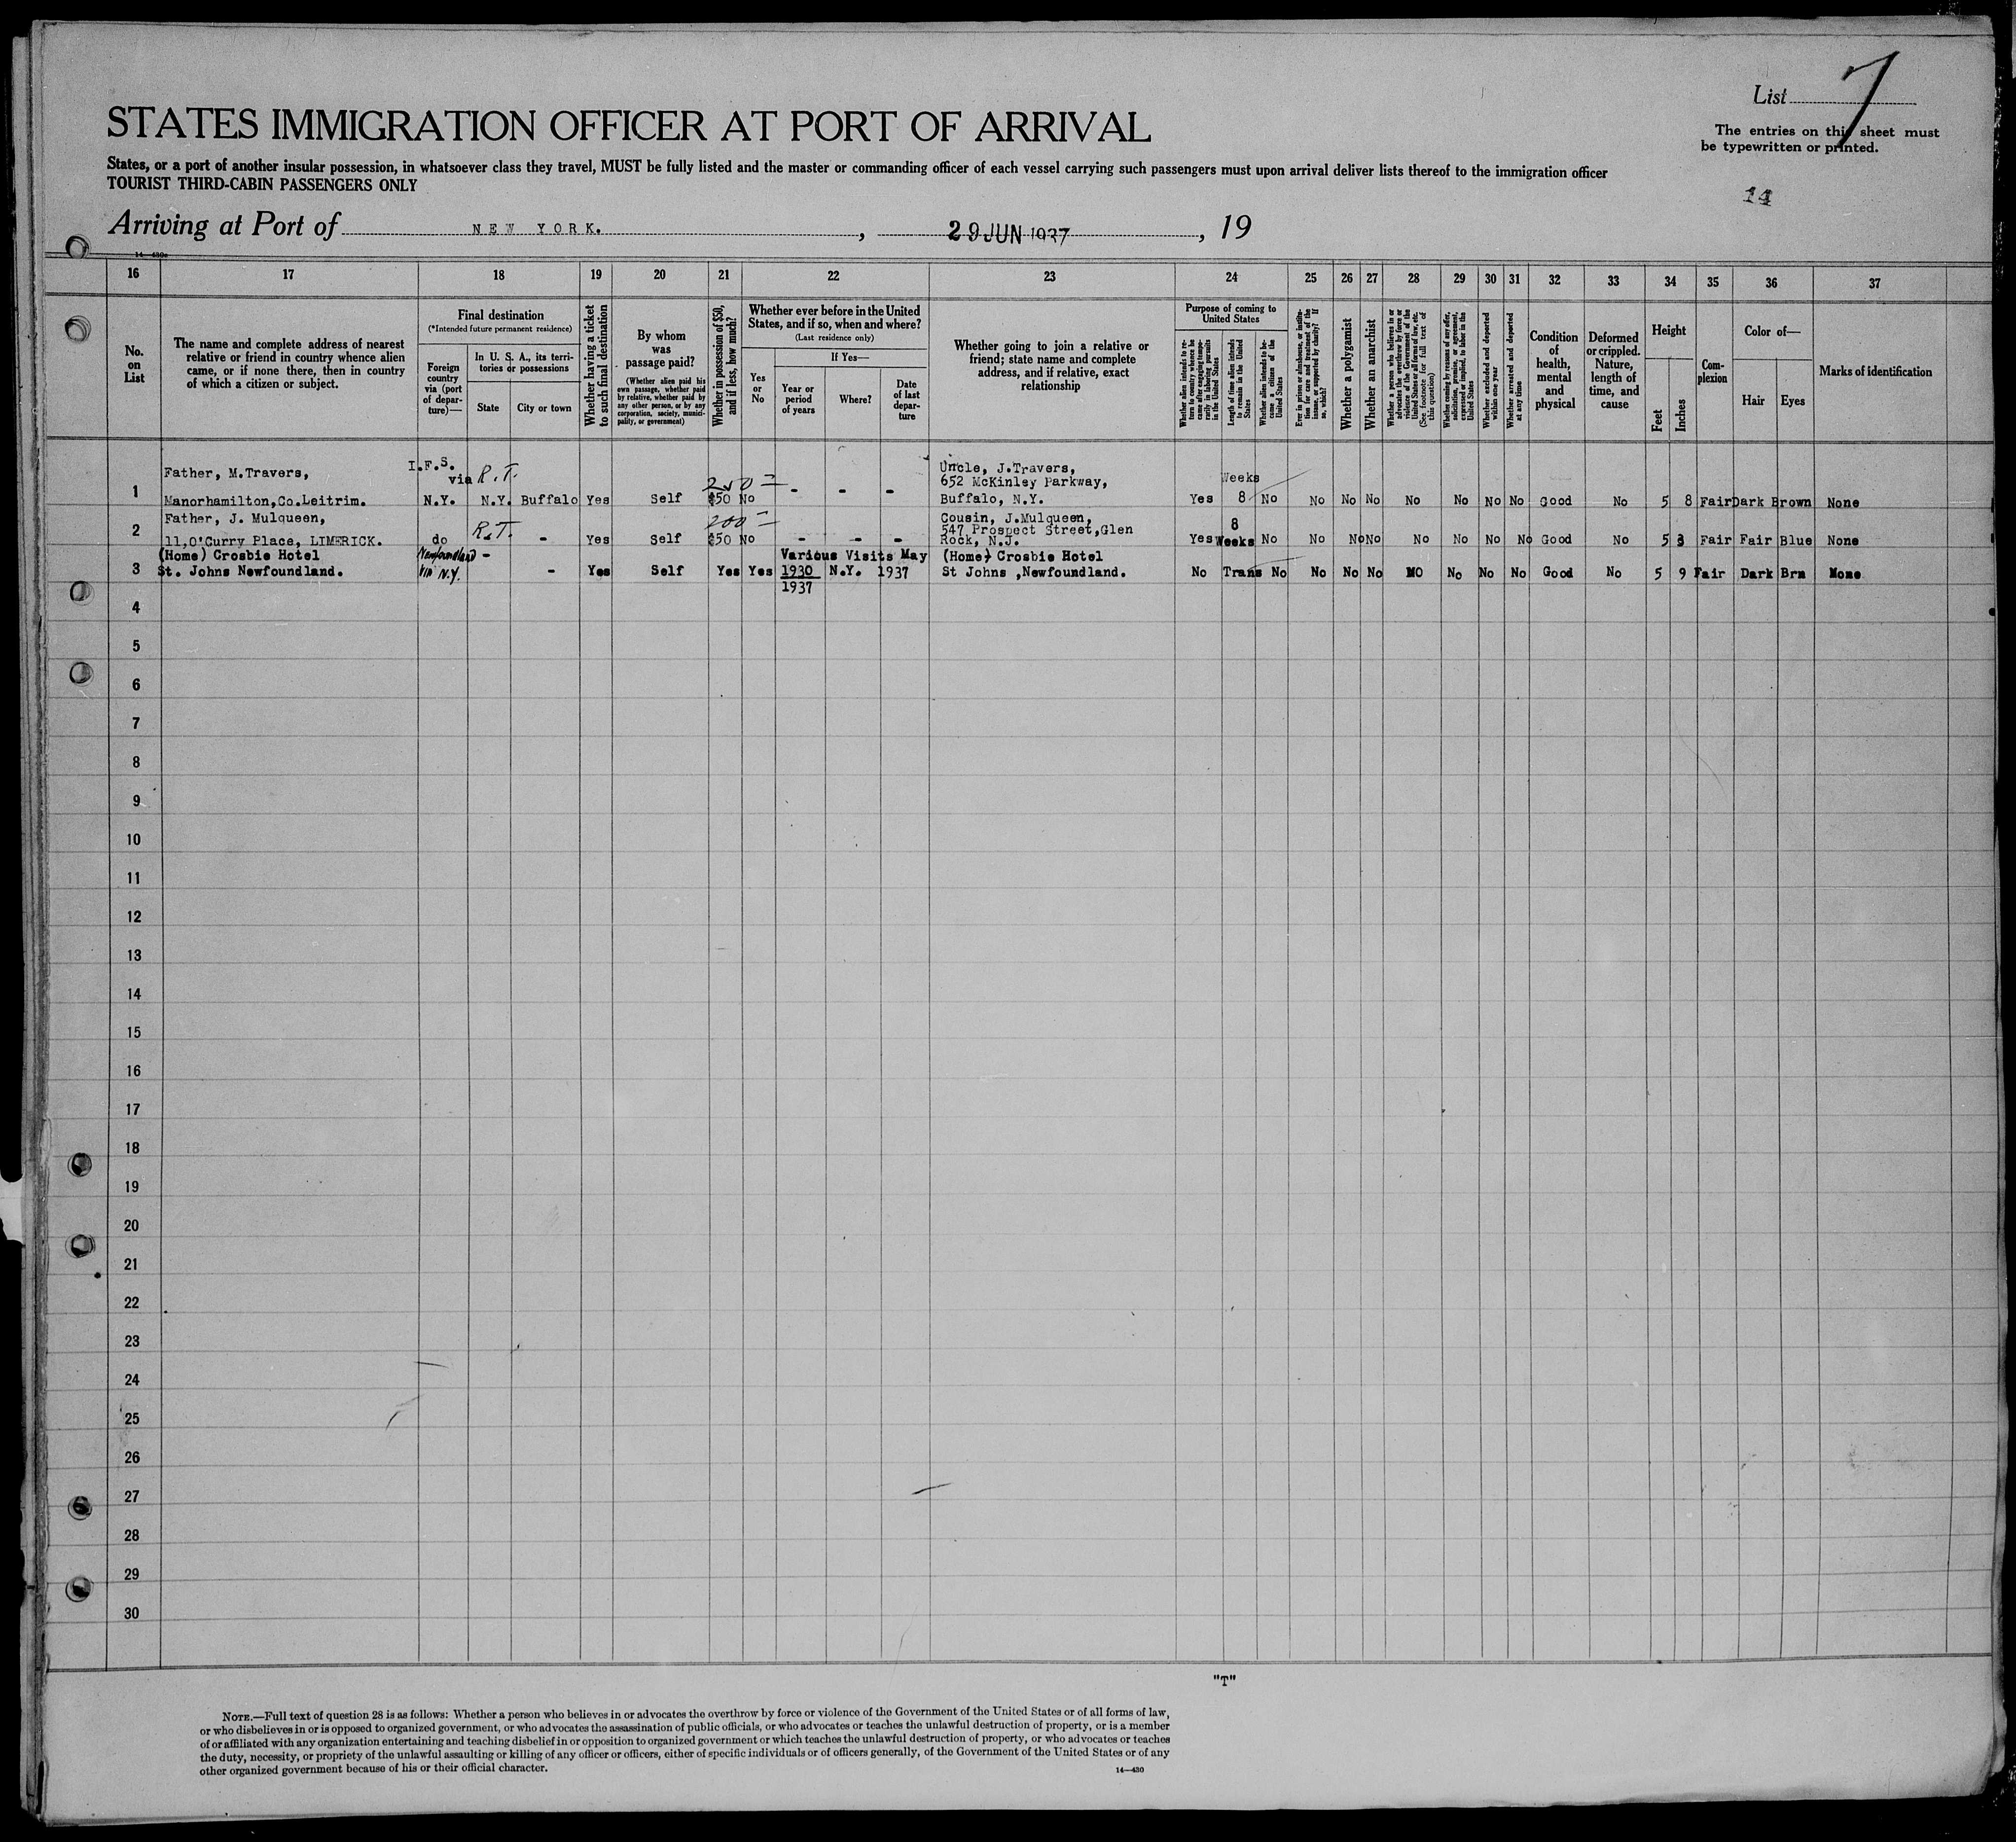 List 7
STATES IMMIGRATION OFFICER AT PORT OF ARRIVAL
The entries on this sheet must
be typewritten or printed.
States, or a port of another insular possession, in whatsoever class they travel, MUST be fully listed and the master or commanding officer of each vessel carrying such passengers must upon arrival deliver lists thereof to the immigration officer
TOURIST THIRD-CABIN PASSENGERS ONLY
14
Arriving at Port of NEW YORK. , 29 JUN 1937 , 19
14—430a
16 17 18 19 20 21 22 23 24 25 26 27 28 29 30 31 32 33 34 35 36 37
No. on List
The name and complete address of nearest relative or friend in country whence alien came, or if none there, then in country of which a citizen or subject.
Final destination
(*Intended future permanent residence)
Foreign country via (port of departure)—
In U. S. A., its territories or possessions
State
City or town
Whether having a ticket to such final destination
By whom was passage paid?
(Whether alien paid his own passage, whether paid by relative, whether paid by any other person, or by any corporation, society, municipality, or government)
Whether in possession of $50, and if less, how much?
Whether ever before in the United States, and if so, when and where?
(Last residence only)
Yes or No
If Yes—
Year or period of years
Where?
Date of last departure
Whether going to join a relative or friend; state name and complete address, and if relative, exact relationship
Purpose of coming to United States
Whether alien intends to return to country whence he came after engaging temporarily in laboring pursuits in the United States
Length of time alien intends to remain in the United States
Whether alien intends to become a citizen of the United States
Ever in prison or almshouse, or institution for care and treatment of the insane, or supported by charity? If so, which?
Whether a polygamist
Whether an anarchist
Whether a person who believes in or advocates the overthrow by force or violence of the Government of the United States or all forms of law, etc. (See footnote for full text of this question)
Whether coming by reasons of any offer, solicitation, promise, or agreement, expressed or implied, to labor in the United States
Whether excluded and deported within one year
Whether arrested and deported at any time
Condition of health, mental and physical
Deformed or crippled. Nature, length of time, and cause
Height
Feet
Inches
Complexion
Color of—
Hair
Eyes
Marks of identification
1 Father, M.Travers, I.F.S. via R.T. 200= Uncle, J.Travers, 652 McKinley Parkway, Weeks
Manorhamilton,Co.Leitrim. N.Y. N.Y. Buffalo Yes Self $50 No - - - Buffalo, N.Y. Yes 8 No No No No No No No No Good No 5 8 Fair Dark Brown None
2 Father, J. Mulqueen, R.T. 200= Cousin, J.Mulqueen, 547 Prospect Street,Glen 8
11,O'Curry Place, LIMERICK. do - Yes Self $50 No - - - Rock, N.J. Yes Weeks No No No No No No No No Good No 5 3 Fair Fair Blue None
3 (Home) Crosbie Hotel Newfoundland - Various Visits May (Home) Crosbie Hotel
St. Johns Newfoundland. Via N.Y. - Yes Self Yes Yes 1930 N.Y. 1937 St Johns ,Newfoundland. No Trans No No No No NO No No No Good No 5 9 Fair Dark Brn None
1937
4
5
6
7
8
9
10
11
12
13
14
15
16
17
18
19
20
21
22
23
24
25
26
27
28
29
30
"T"
NOTE.—Full text of question 28 is as follows: Whether a person who believes in or advocates the overthrow by force or violence of the Government of the United States or of all forms of law,
or who disbelieves in or is opposed to organized government, or who advocates the assassination of public officials, or who advocates or teaches the unlawful destruction of property, or is a member
of or affiliated with any organization entertaining and teaching disbelief in or opposition to organized government or which teaches the unlawful destruction of property, or who advocates or teaches
the duty, necessity, or propriety of the unlawful assaulting or killing of any officer or officers, either of specific individuals or of officers generally, of the Government of the United States or of any
other organized government because of his or their official character.
14—430